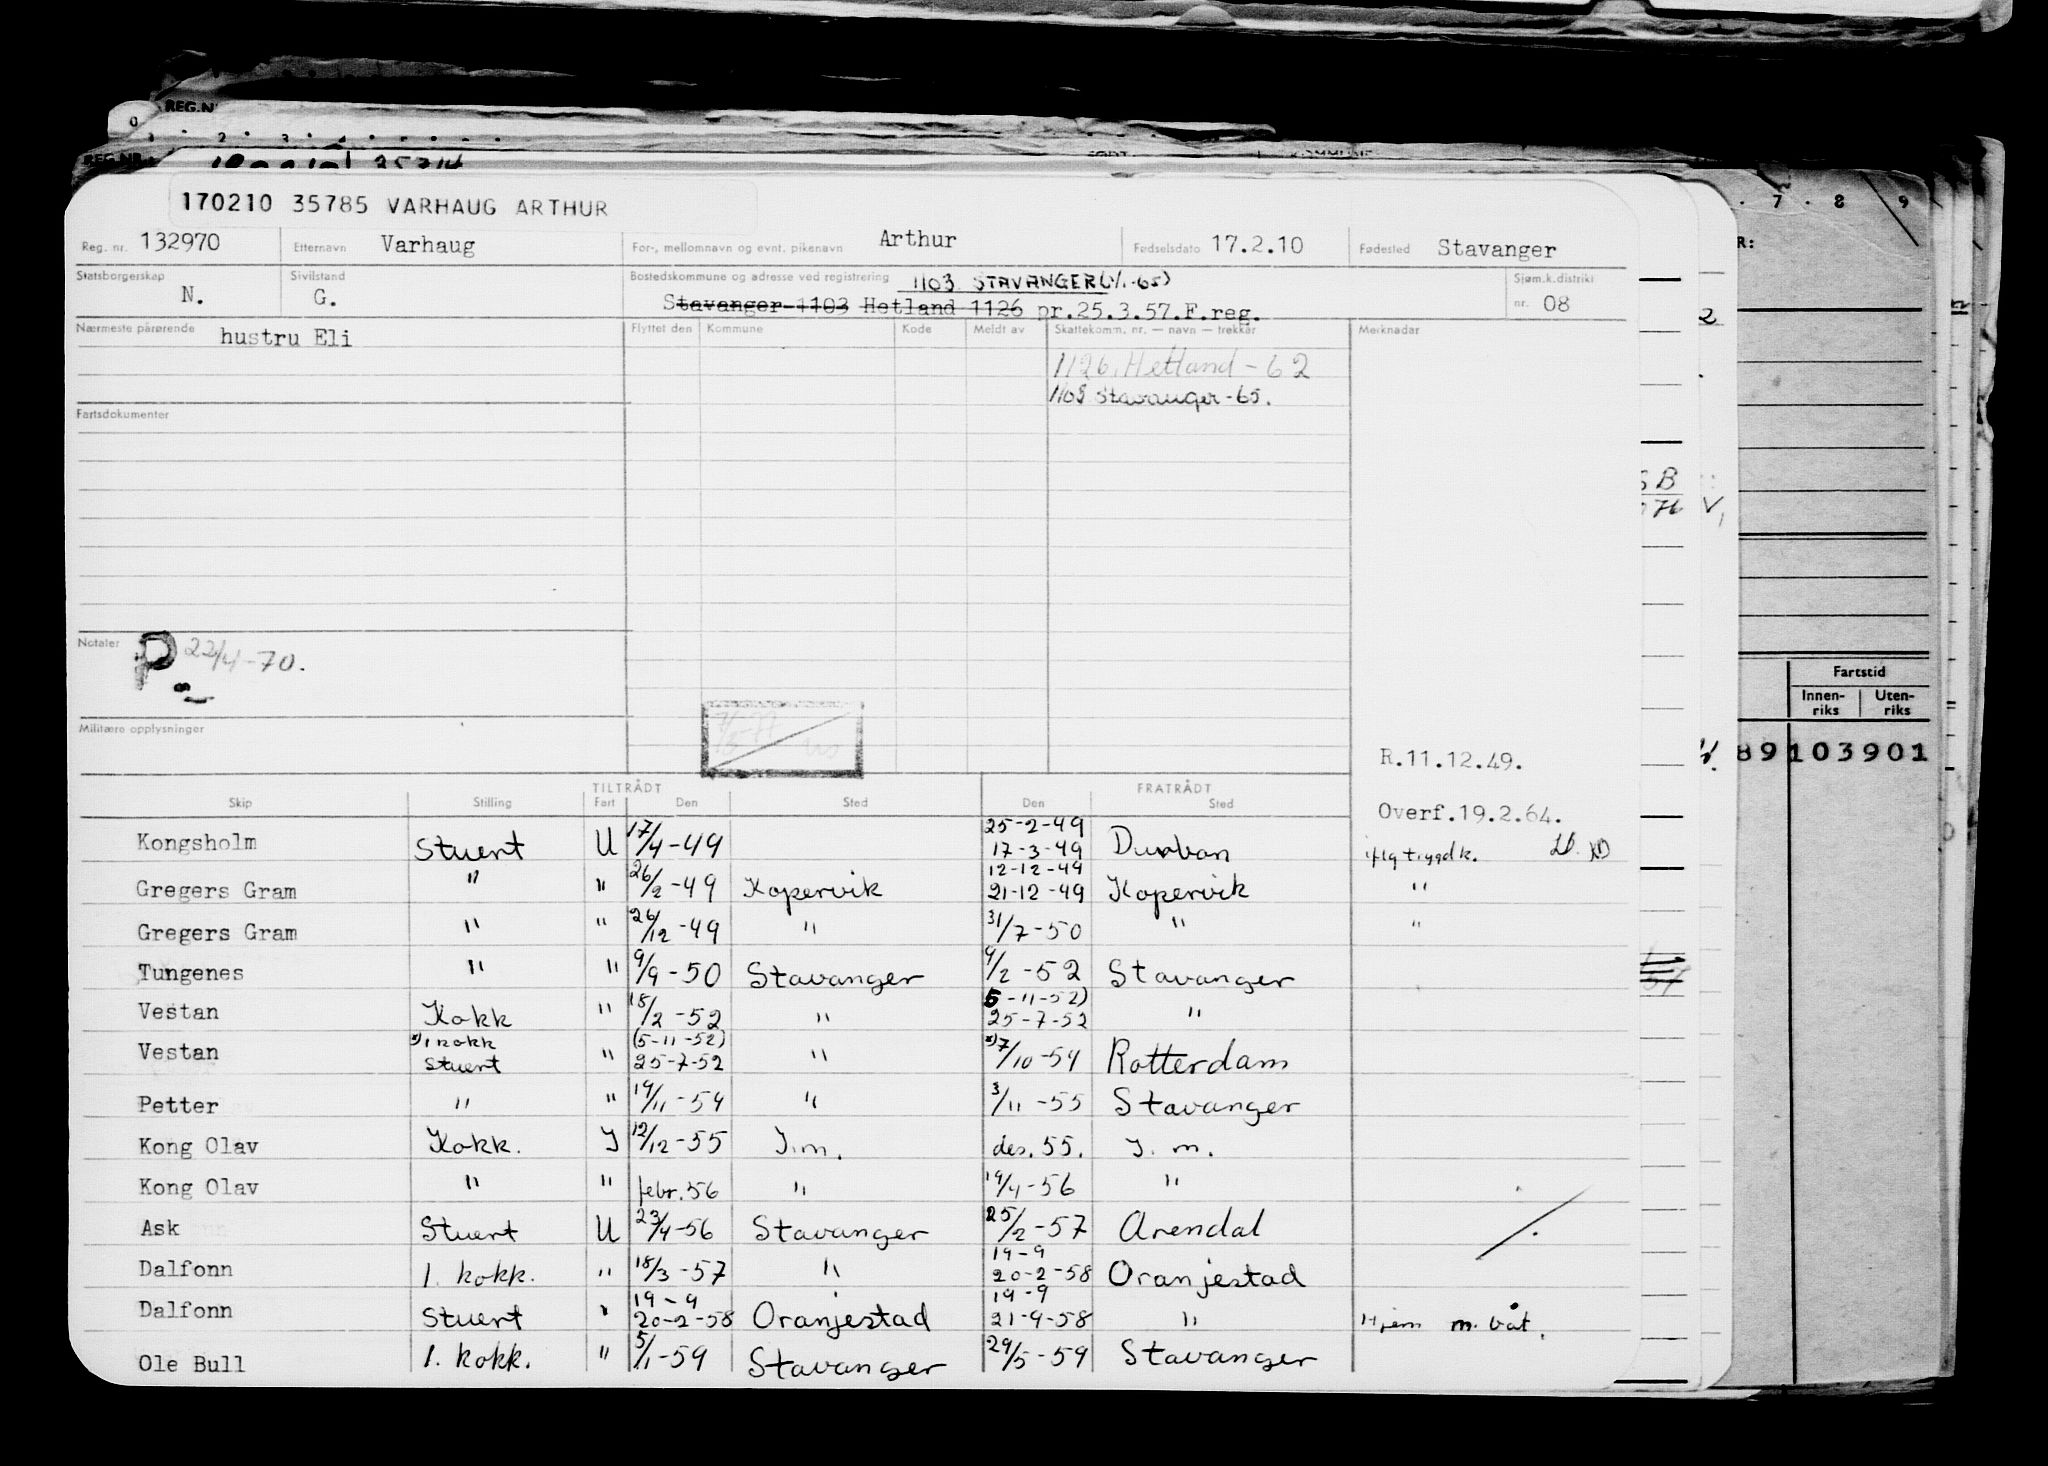 REG.N
170210 35785 VARHAUG ARTHUR
Reg. nr. 132970 Etternavn Varhaug For-, mellomnavn og evnt. pikenavn Arthur Fødselsdato 17.2.10 Fødested Stavanger
Statsborgerskap N. Sivilstand G. Bostedskommune og adresse ved registrering 1103 STAVANGER (1/1-65) Sjøm.k.distrikt
Stavanger 1103 Hetland 1126 pr.25.3.57.F.reg. nr. 08
Nærmeste pårørende hustru Eli Flyttet den Kommune Kode Meldt av Skattekomm. nr. — navn — trekkår Merknader
1126. Hetland - 62
1103 Stavanger - 65.
Fartsdokumenter
Notater P 22/4-70.
Militære opplysninger
R.11.12.49.
Overf.19.2.64.
TILTRÅDT FRATRÅDT
Skip Stilling Fart Den Sted Den Sted
25-2-49
Kongsholm Stuert U 17/4-49 17-3-49 Durban iflg trygdk.
12-12-49
Gregers Gram " " 26/2-49 Kopervik 21-12-49 Kopervik "
Gregers Gram " " 26/12-49 " 31/7-50 " "
Tungenes " " 9/9-50 Stavanger 9/2-52 Stavanger
5-11-52)
Vestan Kokk " 18/2-52 " 25-7-52 "
1 kokk (5-11-52)
Vestan Stuert " 25-7-52 " 7/10-54 Rotterdam
Petter " " 19/11-54 " 3/11-55 Stavanger
Kong Olav Kokk. I 12/12-55 I.m. des. 55. I.m.
Kong Olav " " febr. 56 " 19/4-56 "
Ask Stuert U 23/4-56 Stavanger 25/2-57 Arendal
19-9
Dalfonn 1. kokk. " 18/3-57 " 20-2-58 Oranjestad
19-9 19-9
Dalfonn Stuert " 20-2-58 Oranjestad 21-9-58 " Hjem m. båt.
Ole Bull 1. kokk. " 5/1-59 Stavanger 29/5-59 Stavanger
7 . 8 9
R:
Fartstid
Innen-
riks
Uten-
riks
89103901